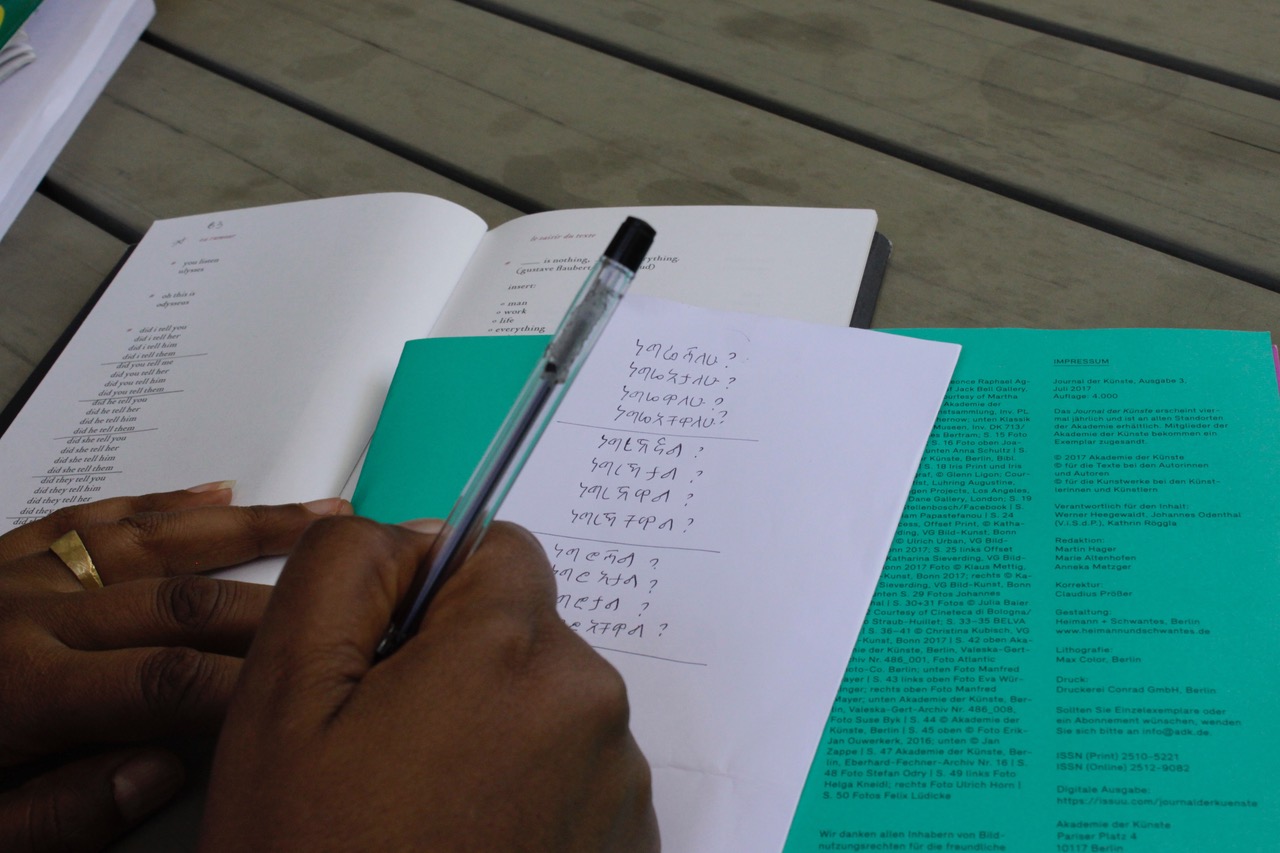 63
en rumeur
* you listen
ulysses
* oh this is
odysseus
* did i tell you
did i tell her
did i tell him
did i tell them
did you tell me
did you tell her
did you tell him
did you tell them
did he tell you
did he tell her
did he tell him
did he tell them
did she tell you
did she tell her
did she tell him
did she tell them
did they tell you
did they tell him
did they tell her
did
le saisir du texte
is nothing,
(gustave
insert:
» man
» work
» life
» everything
ነግሬሻለሁ ?
ነግሬአታለሁ ?
ነግሬዋለሁ ?
ነግሬአቸዋለሁ ?
ነግሮሻል ?
ነግሮአታል ?
once Raphael Ag-
of Jack Bell Gallery,
of Martha
Akademie der
Inv. PL
unten Klassik
Museen, Inv. DK 713/
Bertram; S. 15 Foto
S. 16 oben Foto
unten Anna Schultz | S.
Künste, Berlin, Bibl.
S. 18 Iris Print und Iris
© Glenn Ligon; Cour-
Luhring Augustine,
Projects, Los Angeles,
Dane Gallery, London; S. 19
Facebook | S.
Papastefanou | S. 24
Offset Print, © Katha-
VG Bild-Kunst, Bonn
Ulrich Urban, VG Bild-
2017; S. 25 links Offset
Katharina Sieverding, VG Bild-
2017 Foto © Klaus Mettig,
Bonn 2017; rechts © Ka-
Sieverding, VG Bild-Kunst,
unten S. 29 Fotos Johannes
| S. 30+31 Fotos © Julia Baier
Courtesy of Cineteca di Bologna/
Straub-Huillet; S. 33–35 BELVA
| S. 36–41 © Christina Kubisch, VG
Bonn 2017 | S. 42 oben Aka-
der Künste, Berlin, Valeska-Gert-
Nr. 486_001, Foto Atlantic
Co. Berlin; unten Foto Manfred
Mayer | S. 43 links oben Foto Eva Wür-
rechts oben Foto Manfred
Mayer; unten Akademie der Künste, Ber-
lin, Valeska-Gert-Archiv Nr. 486_008,
Foto Suse Byk | S. 44 © Akademie der
Künste, Berlin | S. 45 oben © Foto Erik-
Jan Ouwerkerk, 2016; unten © Jan
Zappe | S. 47 Akademie der Künste, Ber-
lin, Eberhard-Fechner-Archiv Nr. 16 | S.
48 Foto Stefan Odry | S. 49 links Foto
Helga Kneidl; rechts Foto Ulrich Horn |
S. 50 Fotos Felix Lüdicke
Wir danken allen Inhabern von Bild-
nutzungsrechten für die freundliche
IMPRESSUM
Journal der Künste, Ausgabe 3,
Juli 2017
Auflage: 4.000
Das Journal der Künste erscheint vier-
mal jährlich und ist an allen Standorten
der Akademie erhältlich. Mitglieder der
Akademie der Künste bekommen ein
Exemplar zugesandt.
© 2017 Akademie der Künste
© für die Texte bei den Autorinnen
und Autoren
© für die Kunstwerke bei den Künst-
lerinnen und Künstlern
Verantwortlich für den Inhalt:
Werner Heegewaldt, Johannes Odenthal
(V.i.S.d.P.), Kathrin Röggla
Redaktion:
Martin Hager
Marie Altenhofen
Anneka Metzger
Korrektur:
Claudius Prößer
Gestaltung:
Heimann + Schwantes, Berlin
www.heimannundschwantes.de
Lithografie:
Max Color, Berlin
Druck:
Druckerei Conrad GmbH, Berlin
Sollten Sie Einzelexemplare oder
ein Abonnement wünschen, wenden
Sie sich bitte an info@adk.de.
ISSN (Print) 2510-5221
ISSN (Online) 2512-9082
Digitale Ausgabe:
https://issuu.com/journalderkuenste
Akademie der Künste
Pariser Platz 4
10117 Berlin